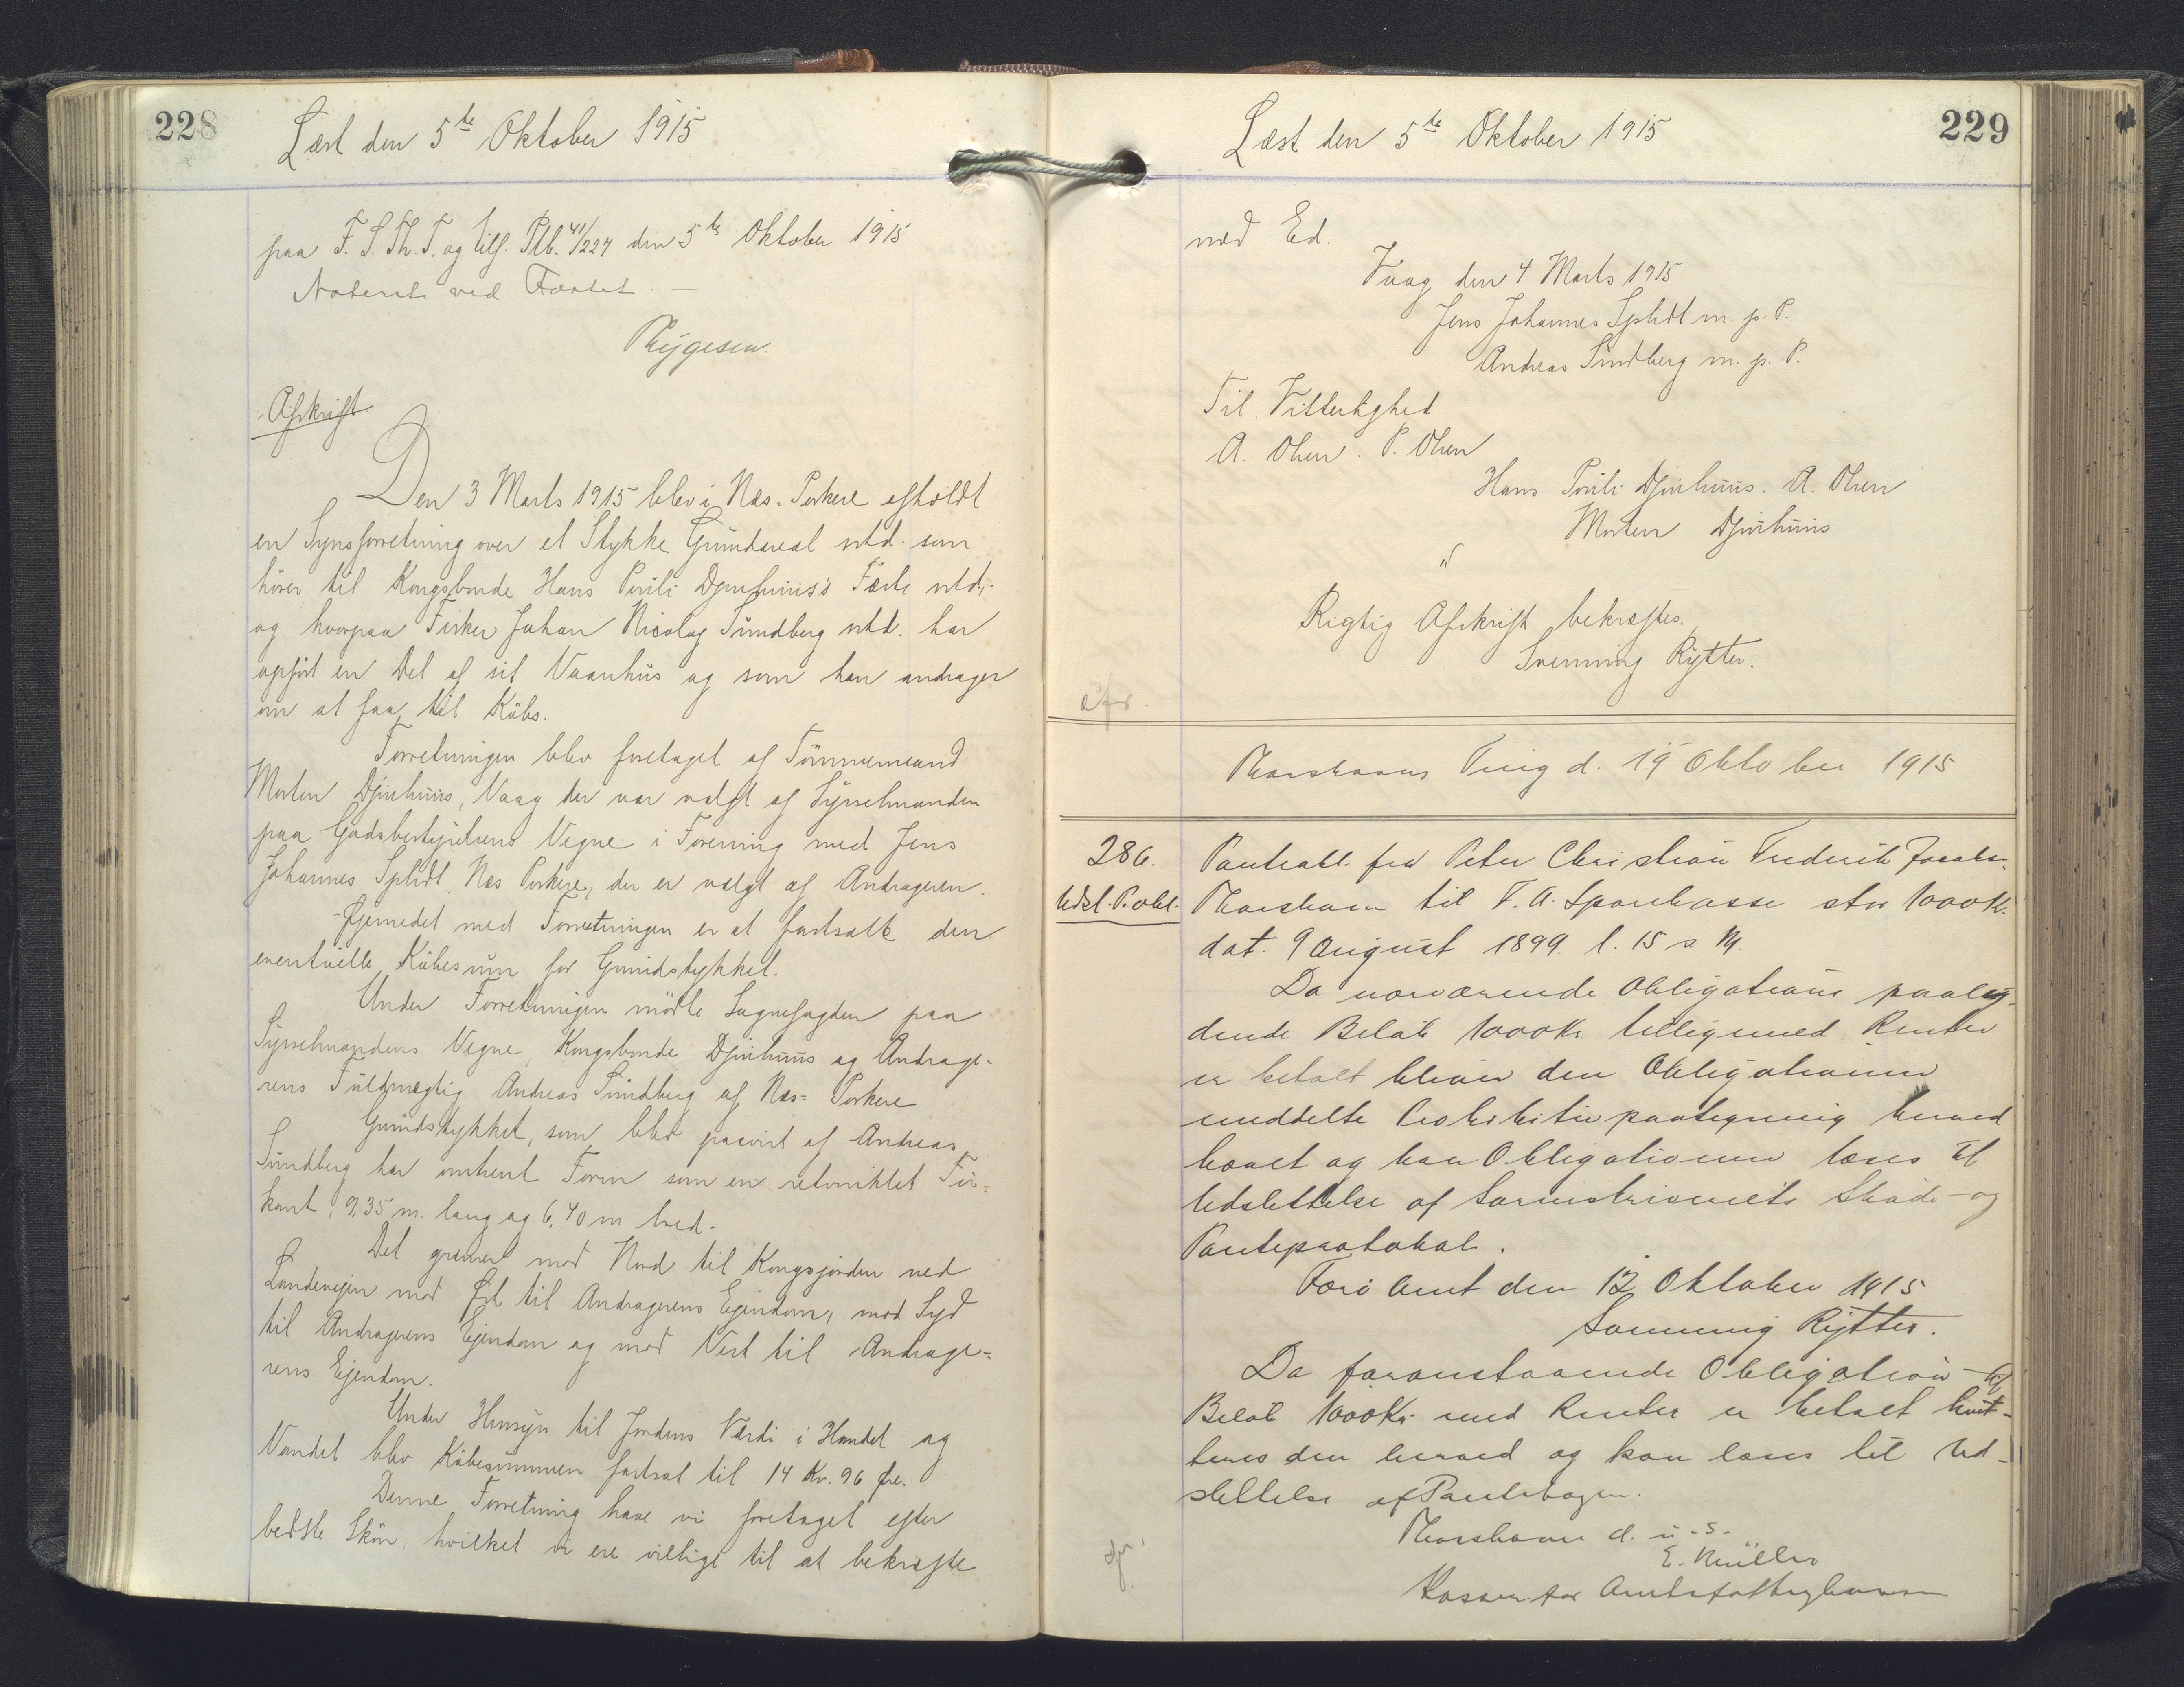 228
Læst den 5te Oktober 1915
paa F. S. Th. T. og tilf. Ptb. 41/227 den 5te Oktober 1915
Noteret ved Fæstet —
Rÿgesen.
Afskrift
Den 3 Marts 1915 blev i Næs-Porkere afholdt
en Synsforretning over et Stykke Grundareal sstd. som
hører til Kongsbonde Hans Pauli Djurhuus's Fæste sstd.
og hvorpaa Fisker Johan Nicolaj Sundberg sstd. har
opført en Del af sit Vaanhus og som han andrager
om at faa til Købs.
Forretningen blev foretaget af Tömmermand
Morten Djurhuus, Vaag der var valgt af Sysselmanden
paa Godsbestyrelsens Vegne i Forening med Jens
Johannes Splidt, Næs Porkere, der er valgt af Andrageren.
Øjemedet med Forretningen er at fastsatte den
eventuelle Købesum for Grundstykket.
Under Forretningen mödte Sognefogden paa
Sysselmandens Vegne, Kongsbonde Djurhuus og Andrage-
rens Fuldmægtig Andreas Sundberg af Næs-Porkere
Grundstykket, som blev paavist af Andreas
Sundberg har omtrent Form som en retvinklet Fir-
kant, 9,35 m. lang og 6,40 m bred.
Det grænser mod Nord til Kongsjorden ved
Landevejen mod Øst til Andragerens Ejendom, mod Syd
til Andragerens Ejendom og mod Vest til Andrage-
rens Ejendom.
Under Hensyn til Jordens Værdi i Handel og
Vandel blev Købesummen fastsat til 14 Kr. 96 Øre.
Denne Forretning have vi foretaget efter
bedste Skön, hvilket vi ere villige til at bekræfte
229
Læst den 5te Oktober 1915
med Ed.
Vaag den 4 Marts 1915
Jens Johannes Splidt m. p. P.
Andreas Sundberg m. p. P.
Til Vitterlighed
A. Olsen. P. Olsen
Hans Pauli Djurhuus. A. Olsen
Morten Djurhuus
"
Rigtig Afskrift bekræftes.
Svenning Rytter.
Thorshavns Ting d. 19 Oktober 1915
286.
Udsl. P. obl.
Panteobl. fra Peter Christian Frederik Jacobs.
Thorshavn til F. A. Sparekasse stor 1000 K.
dat. 9 August 1899. l. 15 s M.
Da nærværende Obligations paaly-
dende Beløb 1000 Kr. tilligemed Renter
er betalt bliver den Obligationen
meddelte Prohibitivpaategning herved
hævet og kan Obligationen læses til
Udslettelse af Sorenskriveriets Skøde- og
Panteprotokol.
Færø Amt den 12 Oktober 1915
Svenning Rytter.
Da foranstaaende Obligation
Beløb 1000 Kr. med Renter er betalt kvit-
teres den herved og kan læses til Ud-
slettelse af Pantebogen.
Thorshavn d. u. s.
E. Müller
Kasserer for Amtsfattig